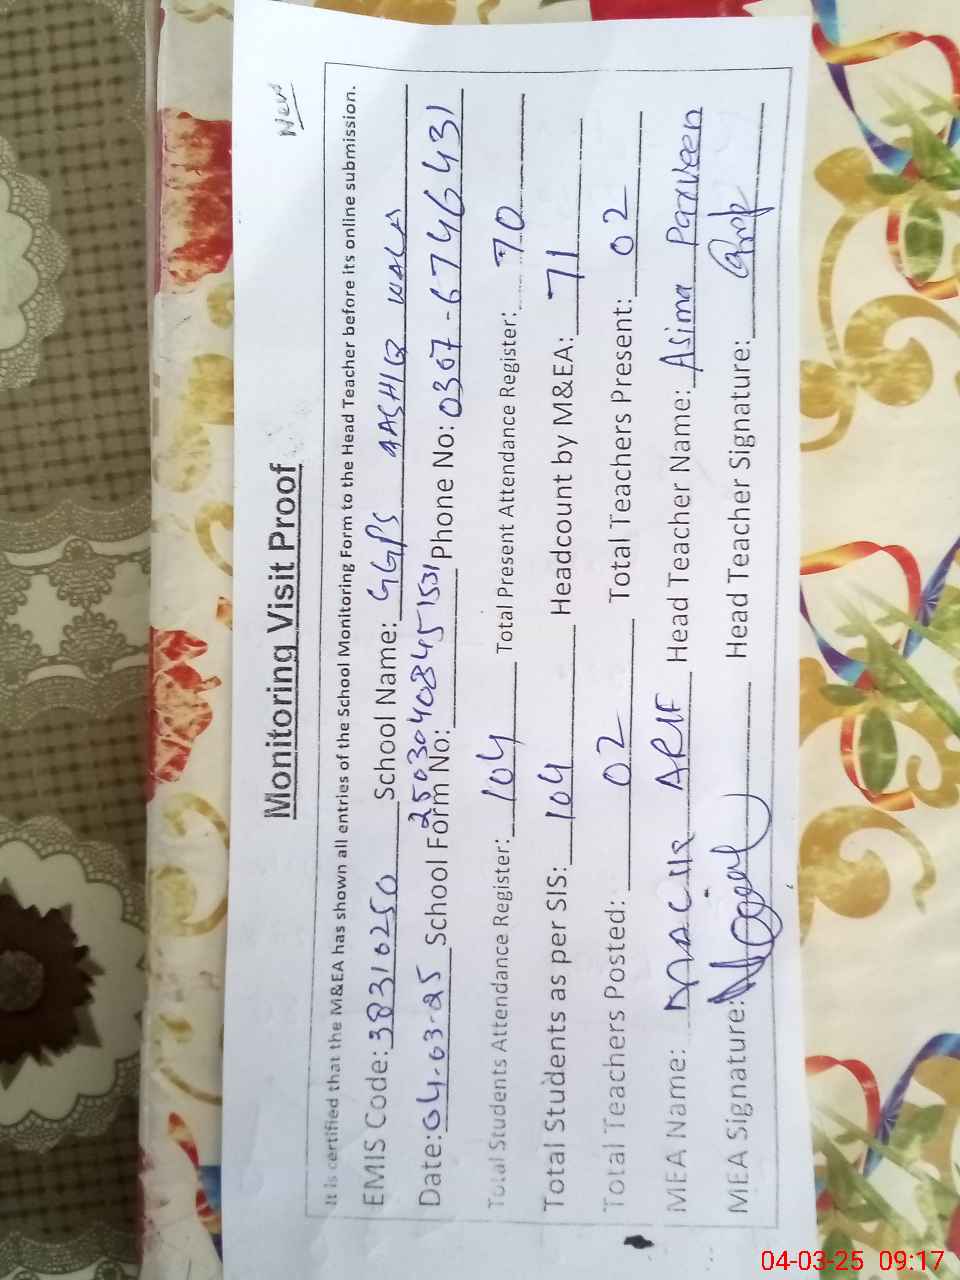 New
Monitoring Visit Proof
It is certified that the M&EA has shown all entries of the School Monitoring Form to the Head Teacher before its online submission.
EMIS Code: 38310250 School Name: GGPS AASHIQ WALA
Date: 04-03-25 School Form No: 25030408451531 Phone No: 0307-6746431
Total Students Attendance Register: 104 Total Present Attendance Register: 70
Total Students as per SIS: 104 Headcount by M&EA: 71
Total Teachers Posted: 02 Total Teachers Present: 02
MEA Name: ARIF Head Teacher Name: Asima Parveen
MEA Signature: Head Teacher Signature:
04-03-25 09:17